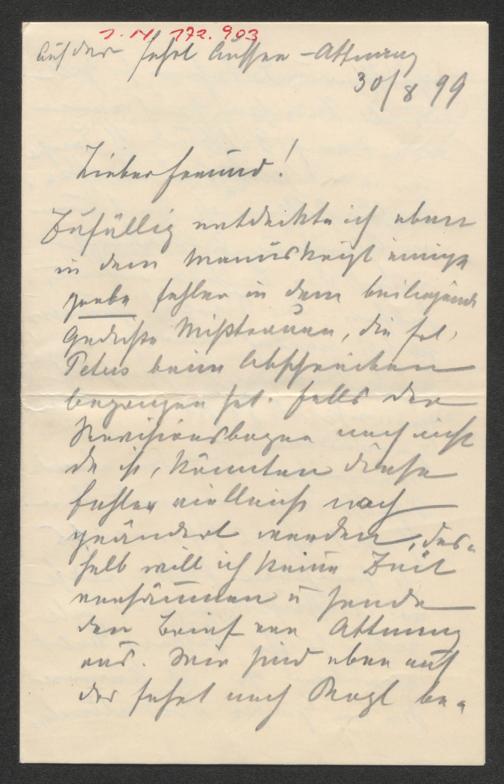 J. N. 172.903
Auf der Fahrt Aussee–Attnang
30/8 99
Lieber Freund!
Zufällig entdeckte ich eben
in dem Manuskript einige
grobe Fehler in dem beiliegende
Gedichte Misstrauen, die Frl.
beim Abschreiben
begangen hat. Falls der
Revisionsbogen noch nicht
da ist, könnten diese
Fehler vielleicht noch
geändert werden, des-
halb will ich keine Zeit
versäumen u sende
den Brief von Attnang
aus. Wir sind eben auf
der Fahrt nach be-